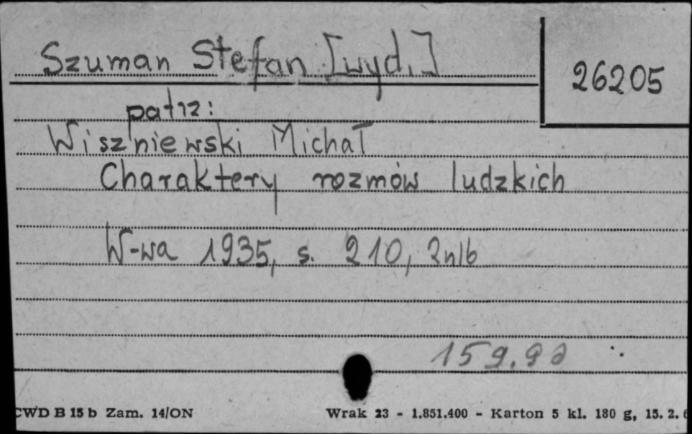 Szuman Stefan [wyd.]
26205
patrz:
Wiszniewski Michał
Charaktery rozmów ludzkich
W-wa 1935, s. 210, 2nlb
159.92
CWD B 15 b Zam. 14/ON
Wrak 23 - 1.851.400 - Karton 5 kl. 180 g, 15. 2. 6